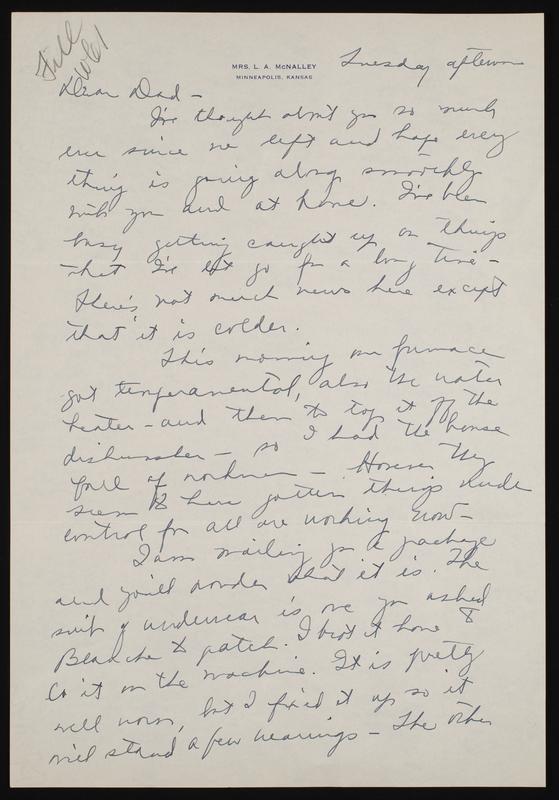 File
1961
MRS. L. A. McNALLEY
MINNEAPOLIS, KANSAS
Tuesday afternoon
Dear Dad -
I've thought about you so much
ever since we left and hope every
thing is going along smoothly
with you and at home. I've been
busy getting caught up on things
that I've let go for a long time -
There's not much news here except
that it is colder.
This morning our furnace
got temperamental, also the water
heater - and then to top it off the
dishwasher - so I had the house
full of workmen - However they
seem to have gotten things under
control for all are working now -
I am mailing you a package
and you'll wonder what it is. The
suit of underwear is one you asked
Blanche to patch. I brot it home to
do it on the machine. It is pretty
well worn, but I fix'd it up so it
will stand a few wearings - The other